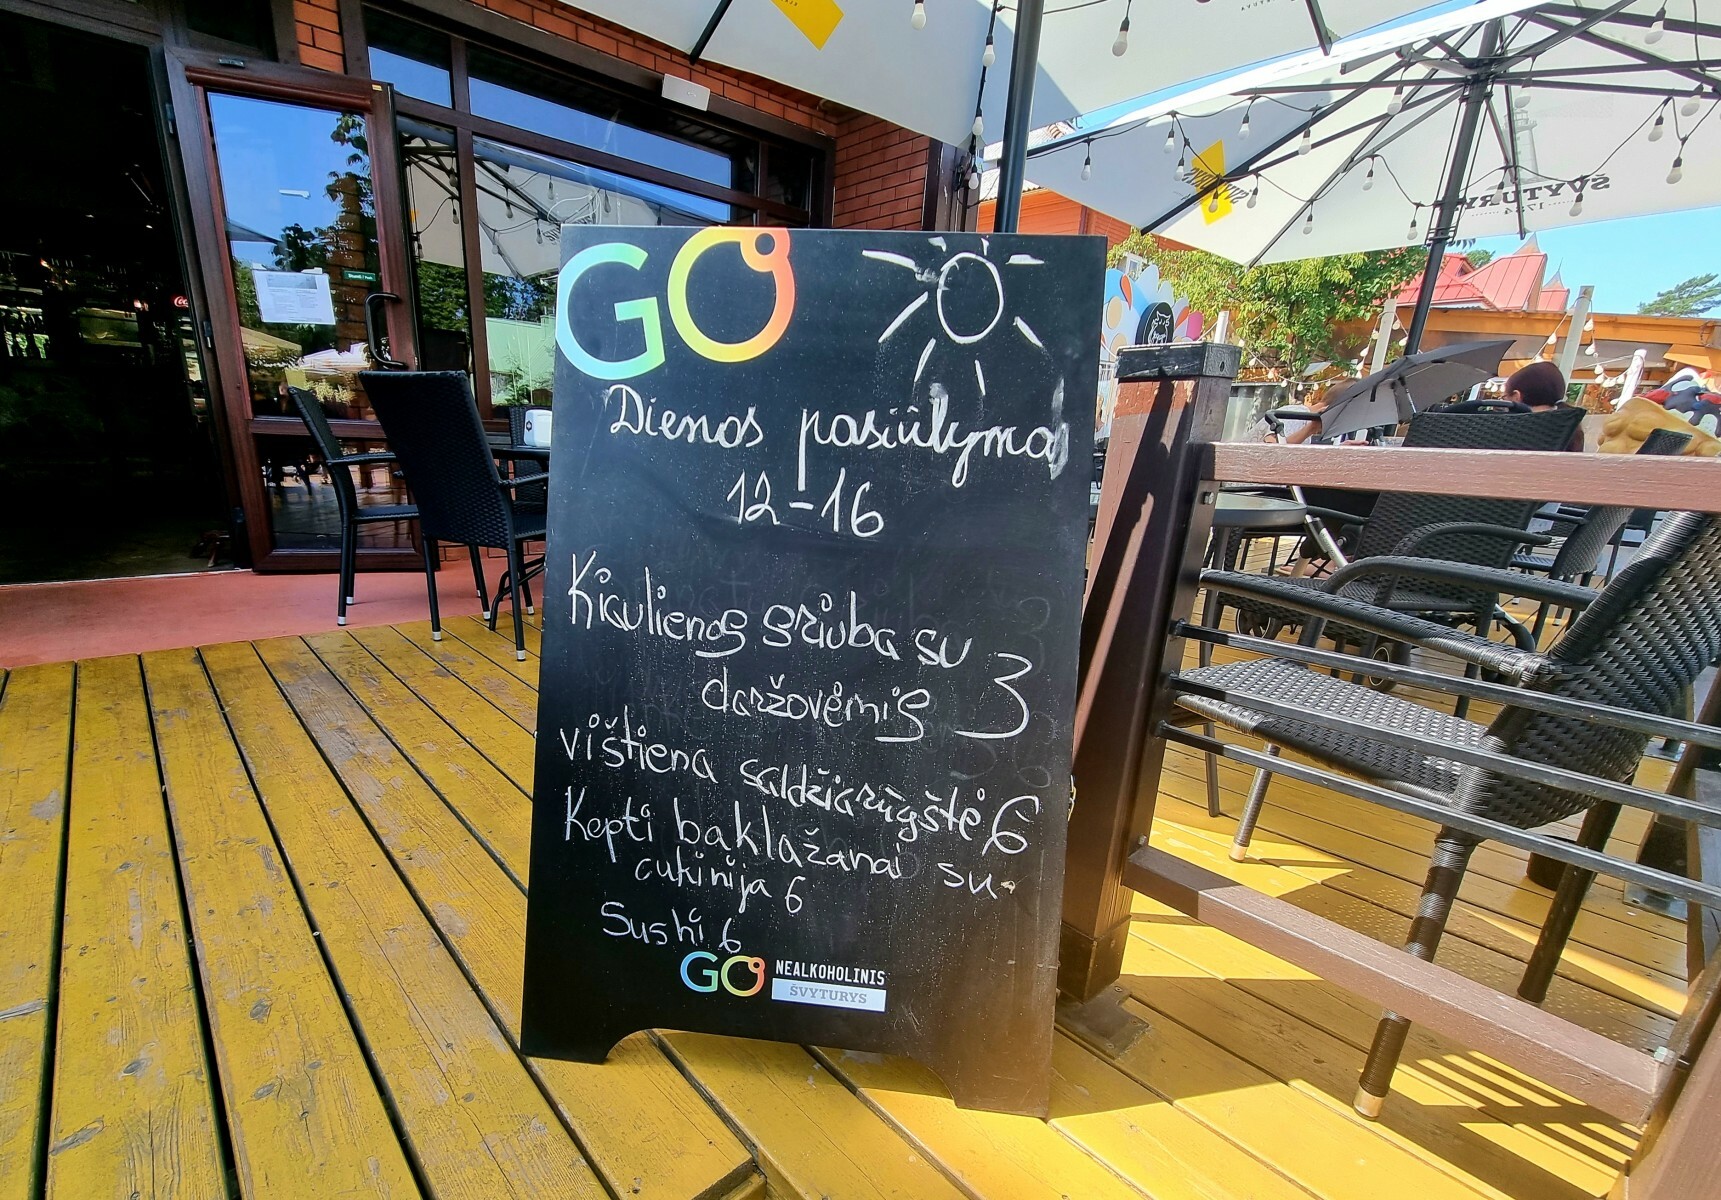 GO
Dienos pasiūlymas
12-16
Kiaulienos sriuba su
daržovėmis 3
vištiena saldžiarūgštė 6
Kepti baklažanai su
cukinija 6
Sushi 6
GO NEALKOHOLINIS
ŠVYTURYS
ŠVYTURYS
1784